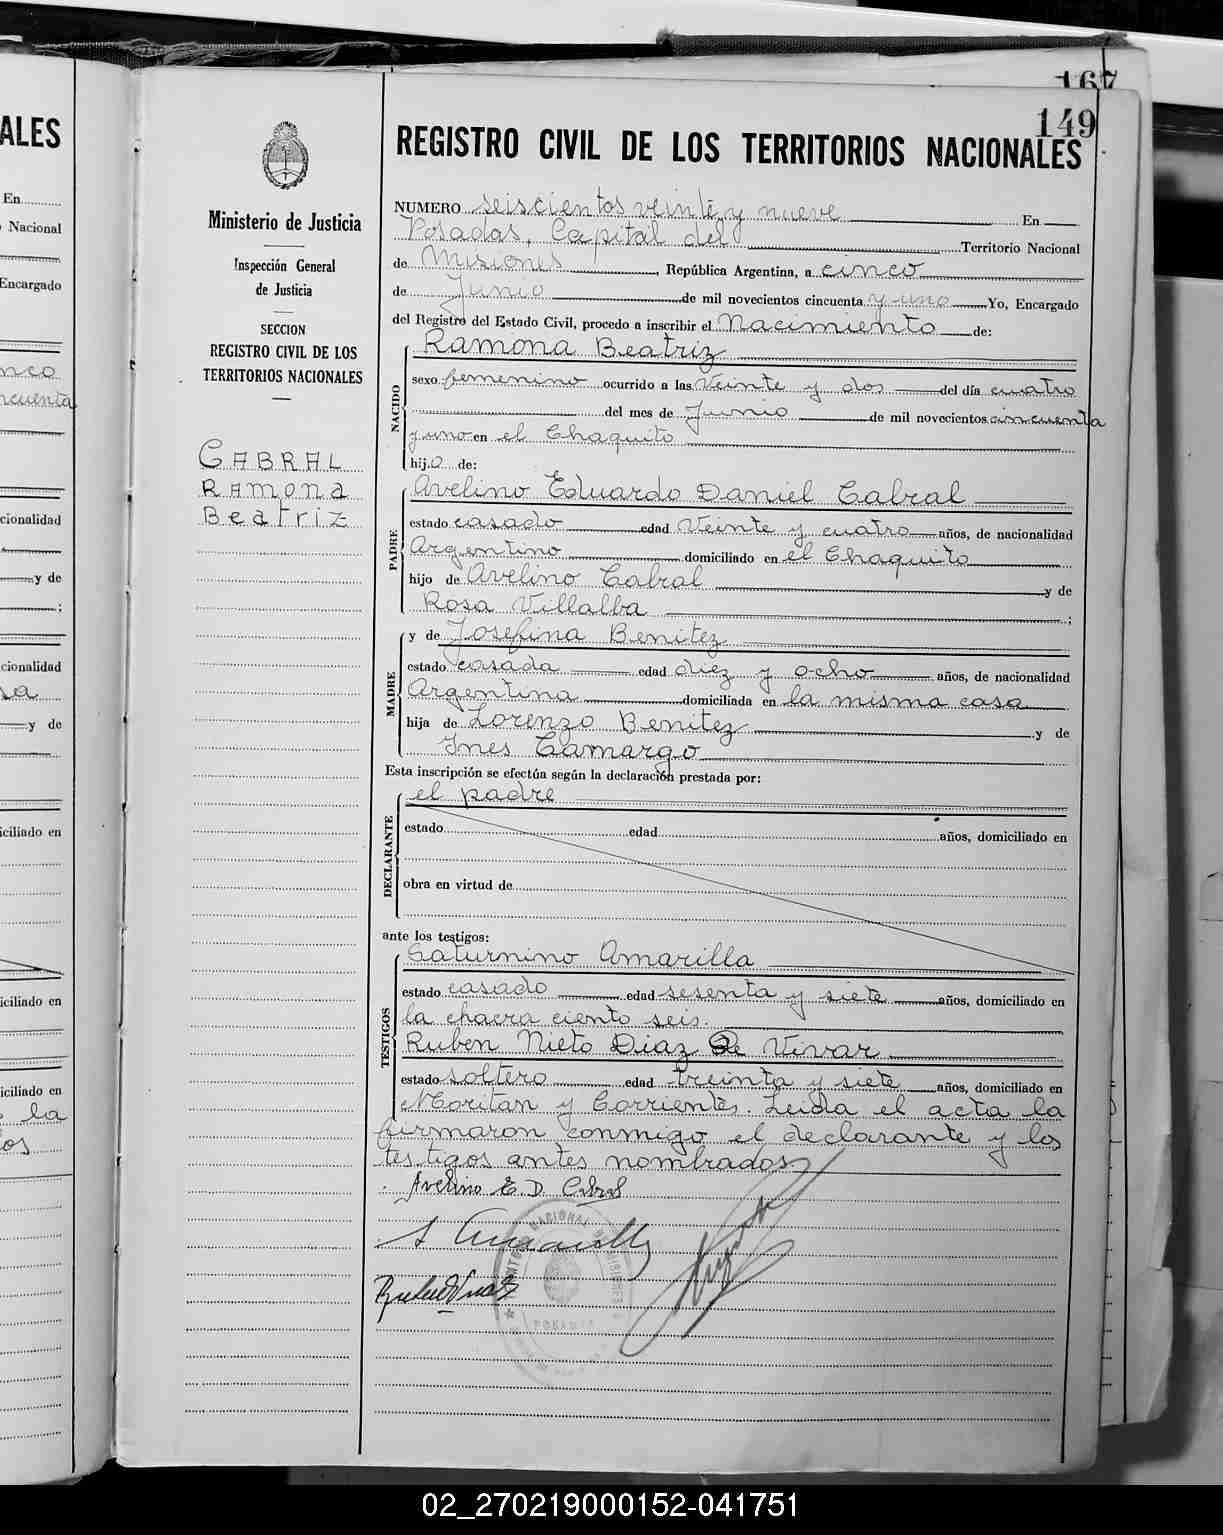 ALES
En
Nacional
Encargado
nco
ncuenta
cionalidad
y de
;
cionalidad
sa
y de
iciliado en
iciliado en
iciliado en
la
os
167
149
Ministerio de Justicia
Inspección General
de Justicia
SECCION
REGISTRO CIVIL DE LOS
TERRITORIOS NACIONALES
CABRAL
Ramona
Beatriz
REGISTRO CIVIL DE LOS TERRITORIOS NACIONALES
NUMERO seiscientos veinte y nueve En
Posadas, Capital del Territorio Nacional
de Misiones, República Argentina, a cinco
de Junio de mil novecientos cincuenta y uno Yo, Encargado
del Registro del Estado Civil, procedo a inscribir el Nacimiento de:
NACIDO
Ramona Beatriz
sexo femenino ocurrido a las Veinte y dos del día cuatro
del mes de Junio de mil novecientos cincuenta
y uno en el Chaquito
hij.a de:
PADRE
Avelino Eduardo Daniel Cabral
estado casado edad Veinte y cuatro años, de nacionalidad
Argentino domiciliado en el Chaquito
hijo de Avelino Cabral y de
Rosa Villalba ;
MADRE
y de Josefina Benitez
estado casada edad diez y ocho años, de nacionalidad
Argentina domiciliada en la misma casa
hija de Lorenzo Benitez y de
Ines Camargo
Esta inscripción se efectúa según la declaración prestada por:
DECLARANTE
el padre
estado edad años, domiciliado en
obra en virtud de
ante los testigos:
TESTIGOS
Saturnino Amarilla
estado casado edad sesenta y siete años, domiciliado en
la chacra ciento seis.
Ruben Nieto Diaz De Vivar
estado soltero edad treinta y siete años, domiciliado en
Moritan y Corrientes. Leida el acta la
firmaron conmigo el declarante y los
testigos antes nombrados
Avelino E. D. Cabral
S Amarilla
NACIONAL DE MISIONES
POSADAS
02_270219000152-041751